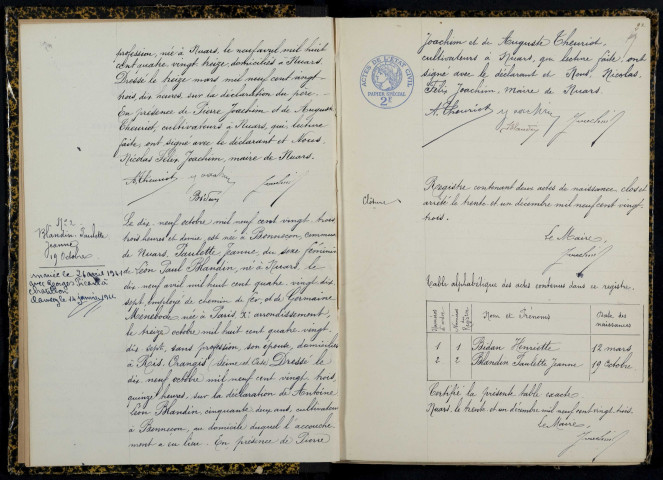 profession, née à Nuars, le neuf avril mil huit
cent quatre vingt treize, domiciliés à Nuars.
Dressé le treize mars mil neuf cent vingt-
trois, dix heures, sur la déclaration du père.
En présence de Pierre Joachim et de Auguste
Theuriot, cultivateurs à Nuars, qui, lecture
faite, ont signé avec le déclarant et Nous.
Nicolas Félix Joachim, maire de Nuars.
A. Theuriot
Bidan
N° 2
Blandin Paulette
Jeanne
19 Octobre
mariée le 21 avril 1941
avec Georges
Le dix neuf octobre mil neuf cent vingt trois
trois heures et demie est née à commune
de Nuars, Paulette Jeanne, du sexe féminin
de Léon Paul Blandin, né à Nuars, le
dix neuf avril mil huit cent quatre vingt dix
sept, employé de chemin de fer, et de Germaine
née à Paris, X: arrondissement,
le treize octobre mil huit cent quatre vingt
dix sept, sans profession, son épouse, domiciliés
à Ris-Orangis (Seine et Oise) Dressé le
dix neuf octobre mil neuf cent vingt trois,
quinze heures, sur la déclaration de Antoine
Léon Blandin, cinquante ans, cultivateur
à au domicile duquel l'accouche-
ment a eu lieu. En présence de Pierre
ACTES DE L'ETAT CIVIL
PAPIER SPECIAL
2F
Joachim et de Auguste Theuriot,
cultivateurs à Nuars, qui lecture faite, ont
signé avec le déclarant et Nous, Nicolas,
Félix Joachim, Maire de Nuars.
A. Theuriot
Blandin
Joachim
Clôture
Registre contenant deux actes de naissance, clos et
arrêté le trente et un décembre mil neuf cent vingt
trois.
Le Maire,
Joachim
Table alphabétique des actes contenus dans ce registre.
Nom et Prénoms
Date des
naissances
1 1 Bidan Henriette 12 mars
2 2 Blandin Paulette Jeanne 19 Octobre
Certifié la présente table exacte
Nuars, le trente et un décembre mil neuf cent vingt trois.
Le Maire,
Joachim